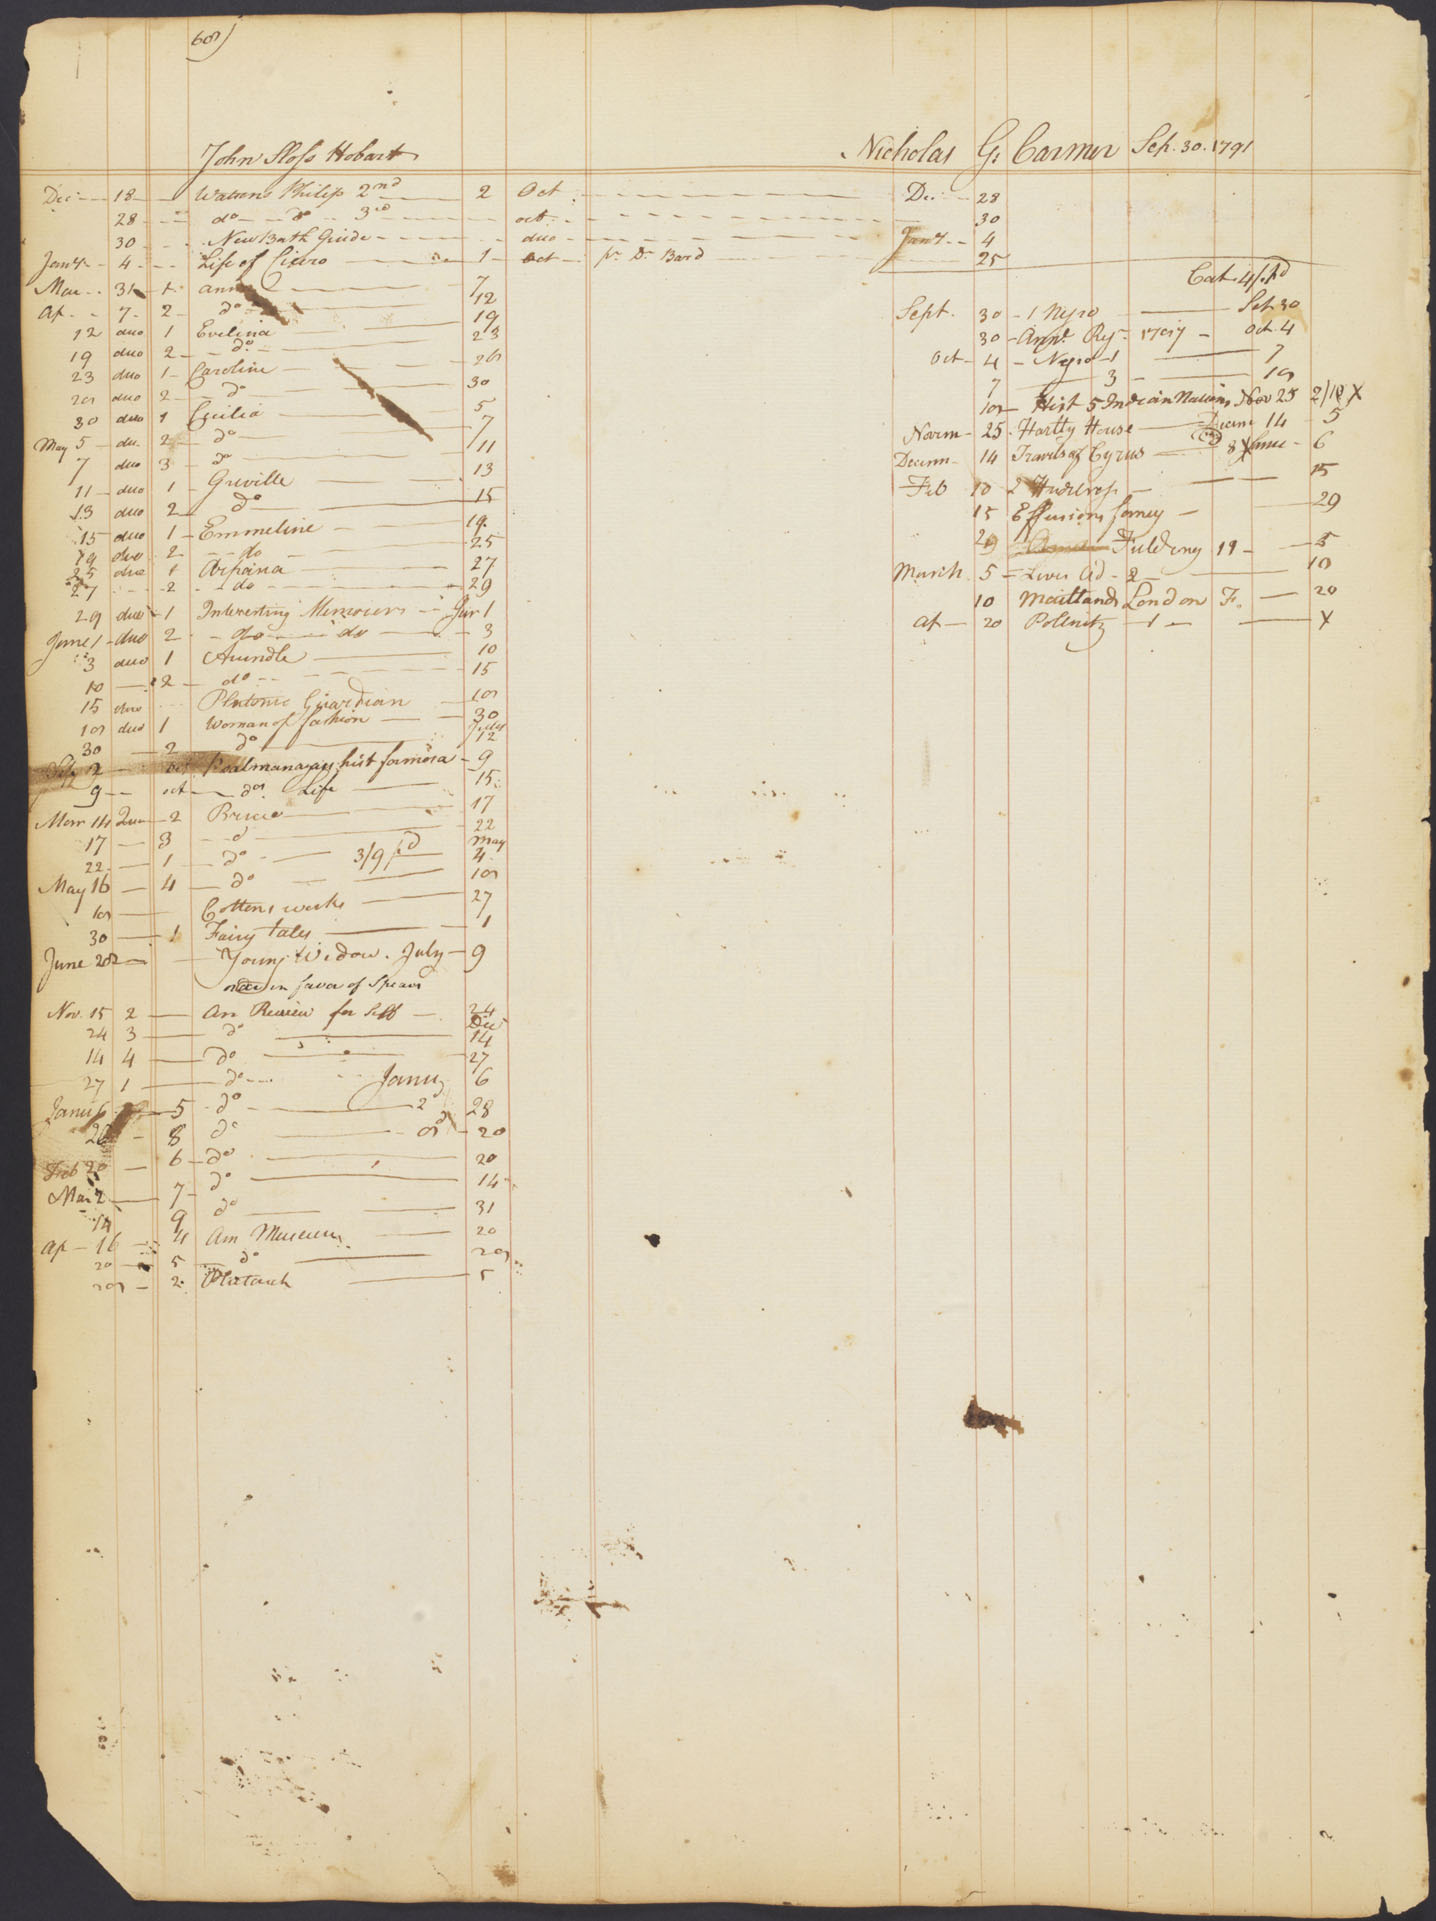 68)
John Sloss Hobart
Dec 18 Watsons Philip 2nd 2 Oct Dec 28
28 do do 3rd oct 30
30 New Bath Guide duo Jany 4
Jany 4 Life of Cicero 1 oct pr Dr Bard 25
Mar 31 1 Ann 7
Ap 7 2 do 12
12 duo 1 Evelina 19
19 duo 2 do 23
23 duo 1 Caroline 28
28 duo 2 do 30
30 duo 1 Cecilia 5
May 5 du 2 do 7
7 duo 3 do 11
11 duo 1 Greville 13
13 duo 2 do 15
15 duo 1 Emmeline 19
19 duo 2 do 25
25 duo 1 Arpasia 27
27 2 do 29
29 duo 1 Interesting Memoirs Jun 1
June 1 duo 2 do do 3
3 duo 1 Arundle 10
10 2 do 15
15 duo Platonic Guardian 18
18 duo 1 Woman of fashion 30
30 2 do July 12
July 2 oct Psalmanazars hist formosa 9
9 oct do Life 15
Marr 14 2 Bruce 17
17 3 do 22
22 1 do 3/9 pd May 4
May 16 4 do 18
18 Cottons works 27
30 1 Fairy tales 1
June 28 2 Young Widow July 9
order in favor of Spears
Nov. 15 2 An Review for Self 24
24 3 do Dec 14
14 4 do 27
27 1 do Jany 6
Jany 6 5 do 2d 28
28 8 do 20
Feb 20 6 do 20
Mar 2 7 do 14
14 9 do 31
Ap 16 4 Am Museum 20
20 5 do 28
28 2 Plutarch 5
Nicholas G. Carmer Sep. 30. 1791
Cat 4/ pd
Sept. 30 1 Nyro Sep 30
30 Annl Regr 1787 Oct. 4
Oct 4 Nyro 1 7
7 3 18
18 Hist 5 Indian Nations Nov 25 2/10 X
Novm 25 Hartly House Decem 14 5
Decem 14 Travels of Cyrus 6
Feb 10 2 15
15 Effusions fancy 29
29 Fielding 11 5
March 5 2 10
10 Maitlands London F. 20
Ap 20 Polenitz 1 X